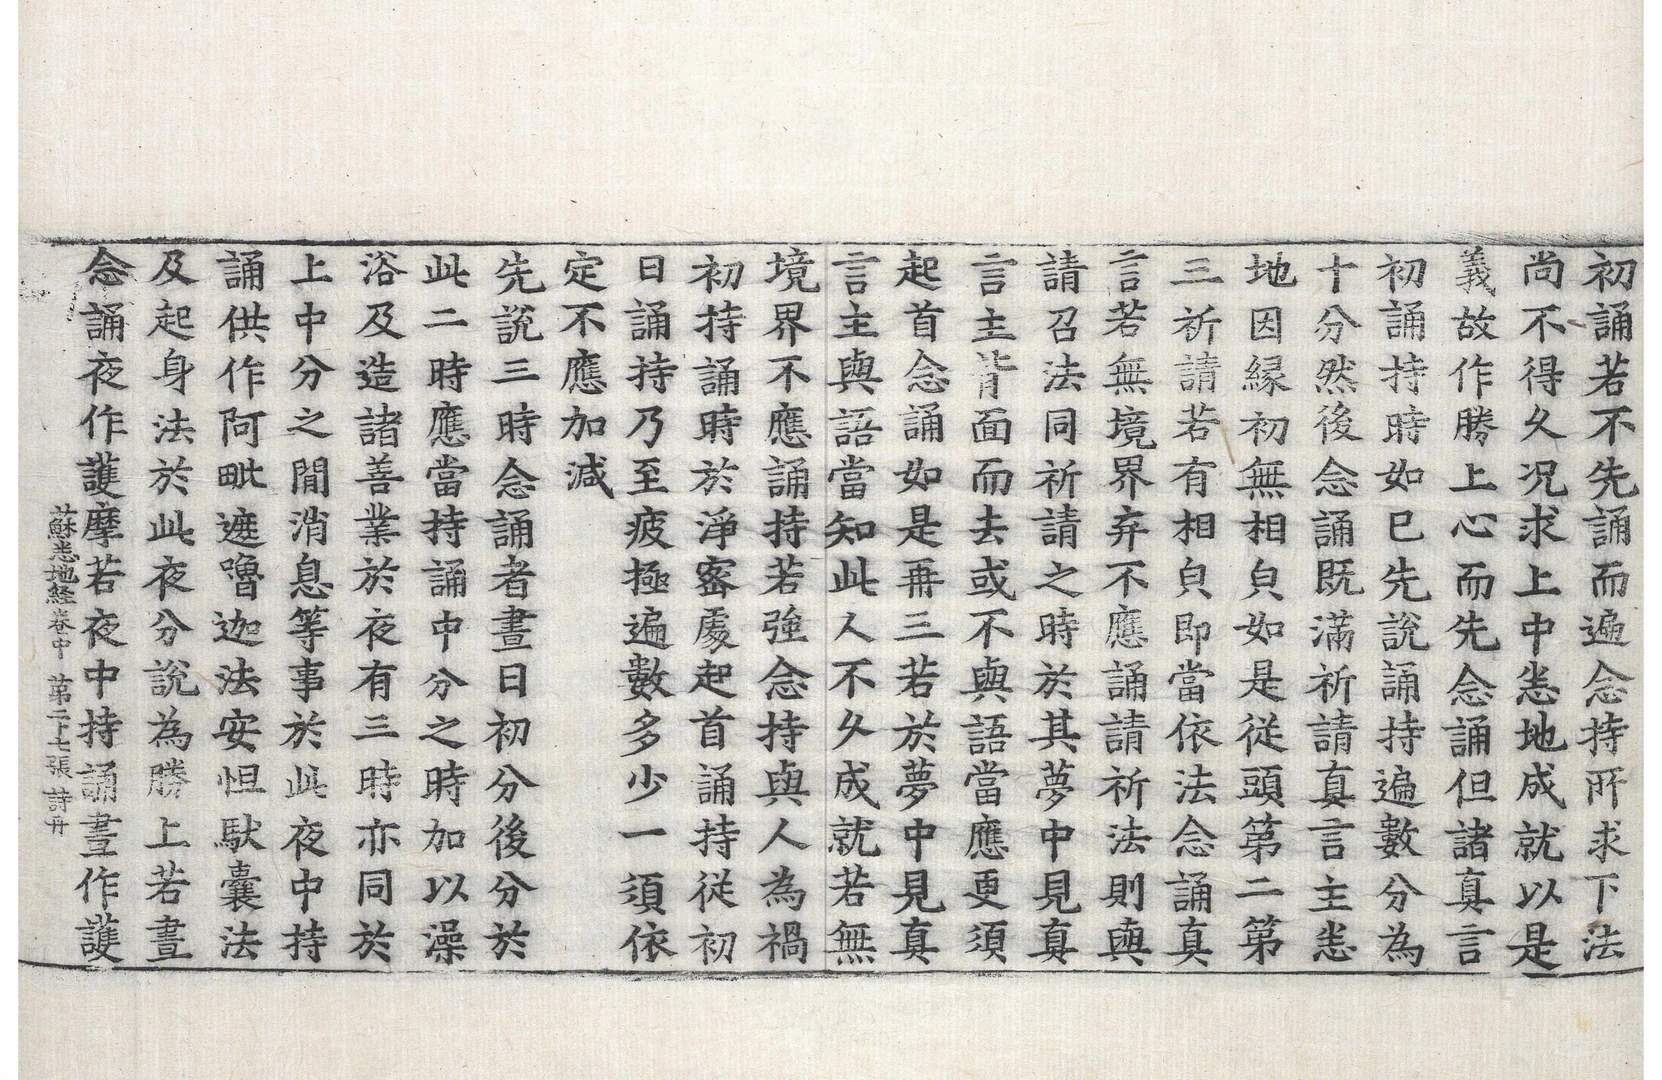 初誦若不先誦而遍念持所求下法
尚不得久况求上中悉地成就以是
義故作勝上心而先念誦但諸真言
初誦持時如已先說誦持遍數分為
十分然後念誦既滿祈請真言主悉
地因縁初無相㒵如是従頭第二第
三祈請若有相㒵即當依法念誦真
言若無境界弃不應誦請祈法則與
請召法同祈請之時於其夢中見真
言主背面而去或不與語當應更須
起首念誦如是再三若於夢中見真
言主與語當知此人不久成就若無
境界不應誦持若強念持與人為禍
初持誦時於淨密處起首誦持従初
日誦持乃至疲極遍數多少一須依
定不應加減
先說三時念誦者晝日初分後分於
此二時應當持誦中分之時加以澡
浴及造諸善業於夜有三時亦同於
上中分之間消息等事於此夜中持
誦供作阿毗遮嚕迦法安怛馱囊法
及起身法於此夜分說為勝上若晝
念誦夜作護摩若夜中持誦晝作護
蘇悉地経卷中 第二十七張 詩冊